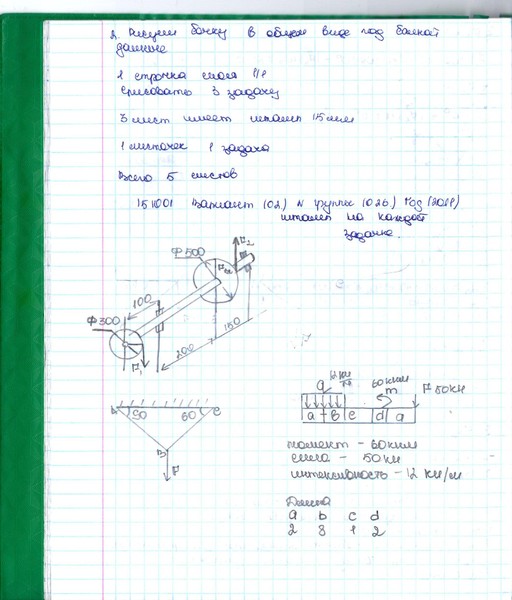 Рисуем балку в общем виде под балкой
данные
1 строчка
рисовать 3 задачу
3 лист имеет штамп 15 мм
1 листочек 1 задача
Всего 5 листов
151001 Вариант (02) N группы (026) Год (2018)
штамп на каждой
задачке.
Ф500
F2
100
Ф300
F1
200
150
q
12 кн/м
60 кнм
m
F 50 кн
a b c d a
A 50 60 C
B
F
момент - 60 кнм
сила - 50 кн
интенсивность - 12 кн/м
Длина
a b c d
2 3 1 2